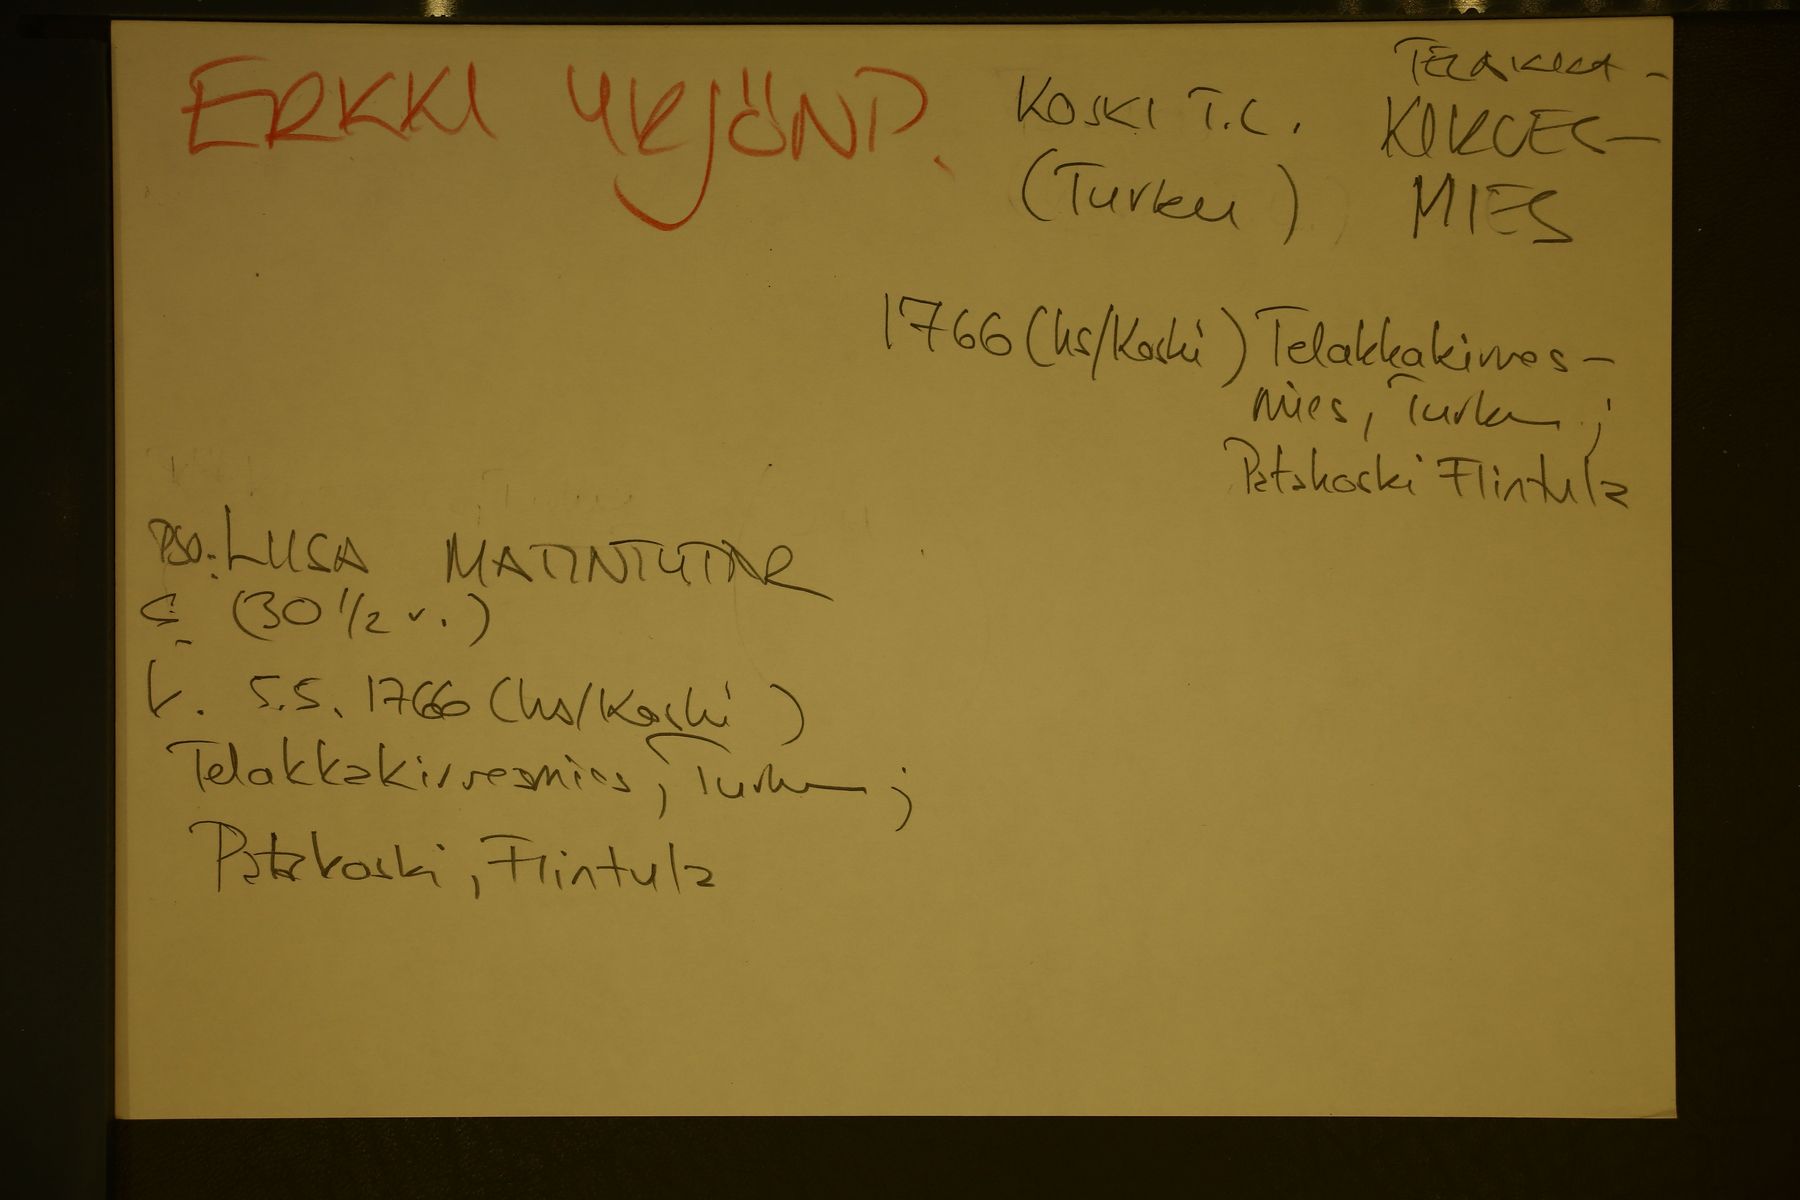 ERKKI YRJÖNP.
KOSKI T.L.
(Turku)
TELAKKA-
KIRVES-
MIES
1766 (hs/Koski) Telakkakirves-
mies, Turku;
Patakoski Flintula
PSO: LIISA MATINTYTÄR
S. (30 1/2 v.)
k. 5.5. 1766 (hs/Koski)
Telakkakirvesmies, Turku;
Patakoski, Flintula